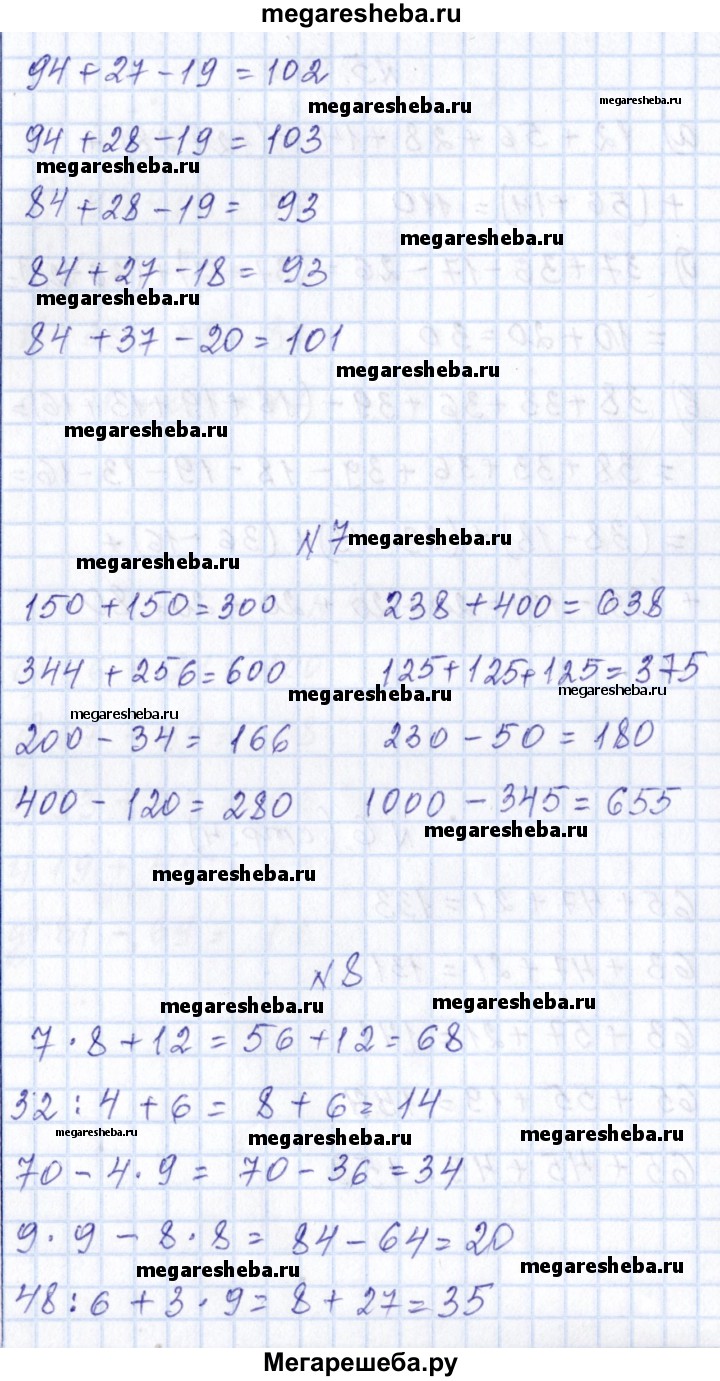 megaresheba.ru
94 + 27 - 19 = 102
megaresheba.ru megaresheba.ru
94 + 28 - 19 = 103
megaresheba.ru
84 + 28 - 19 = 93
megaresheba.ru
84 + 27 - 18 = 93
megaresheba.ru
84 + 37 - 20 = 101
megaresheba.ru
megaresheba.ru
N 7 megaresheba.ru
megaresheba.ru
150 + 150 = 300 238 + 400 = 638
344 + 256 = 600 125 + 125 + 125 = 375
megaresheba.ru megaresheba.ru
megaresheba.ru
200 - 34 = 166 230 - 50 = 180
400 - 120 = 280 1000 - 345 = 655
megaresheba.ru
megaresheba.ru
N 8
megaresheba.ru megaresheba.ru
7 · 8 + 12 = 56 + 12 = 68
32 : 4 + 6 = 8 + 6 = 14
megaresheba.ru megaresheba.ru megaresheba.ru
70 - 4 · 9 = 70 - 36 = 34
9 · 9 - 8 · 8 = 84 - 64 = 20
megaresheba.ru megaresheba.ru
48 : 6 + 3 · 9 = 8 + 27 = 35
Мегарешеба.ру